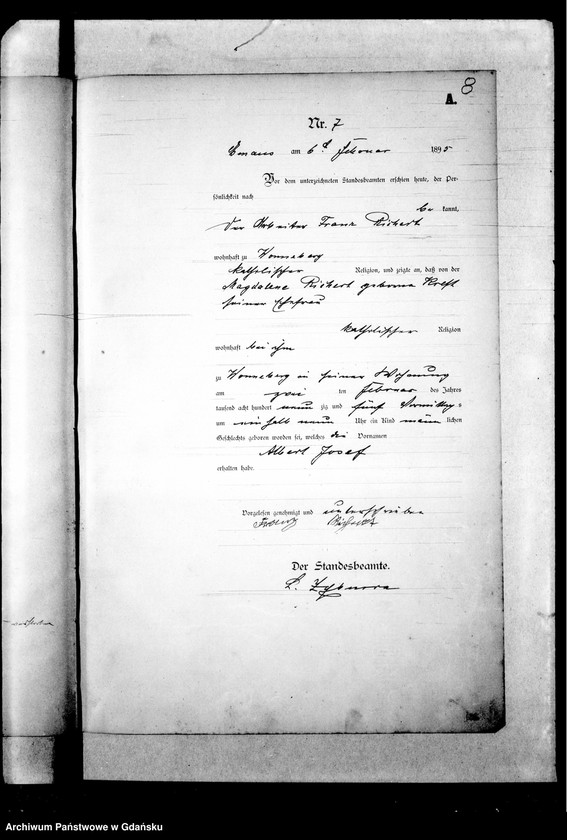 8
A.
Nr. 7
Emaus am 6t Februar 1895
Vor dem unterzeichneten Standesbeamten erschien heute, der Per-
sönlichkeit nach
be kannt,
der Arbeiter Franz Richert
wohnhaft zu Wonneberg
katholischer Religion, und zeigte an, daß von der
Magdalene Richert geborene Kreft
seiner Ehefrau
katholischer Religion
wohnhaft bei ihm
zu Wonneberg in seiner Wohnung
am zwei ten Februar des Jahres
tausend acht hundert neun zig und fünf Vormittag s
um ein halb neun Uhr ein Kind männ lichen
Geschlechts geboren worden sei, welches die Vornamen
Albert Josef
erhalten habe.
Vorgelesen genehmigt und unterschrieben
Franz Richert
Der Standesbeamte.
Archiwum Państwowe w Gdańsku